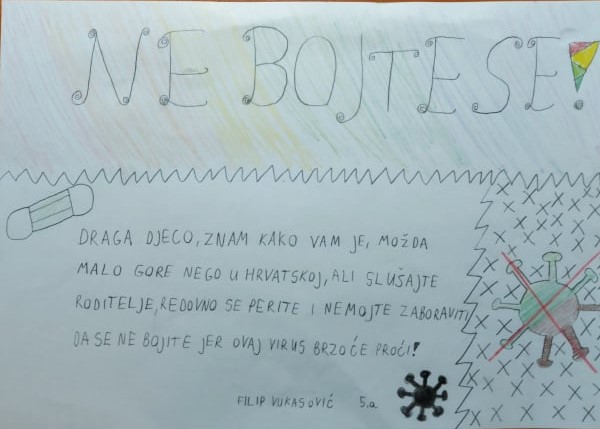 NE BOJTE SE!
DRAGA DJECO, ZNAM KAKO VAM JE, MOŽDA
MALO GORE NEGO U HRVATSKOJ, ALI SLUŠAJTE
RODITELJE, REDOVNO SE PERITE I NEMOJTE ZABORAVITI
DA SE NE BOJITE JER OVAJ VIRUS BRZO ĆE PROĆI!
FILIP VUKASOVIĆ 5.a